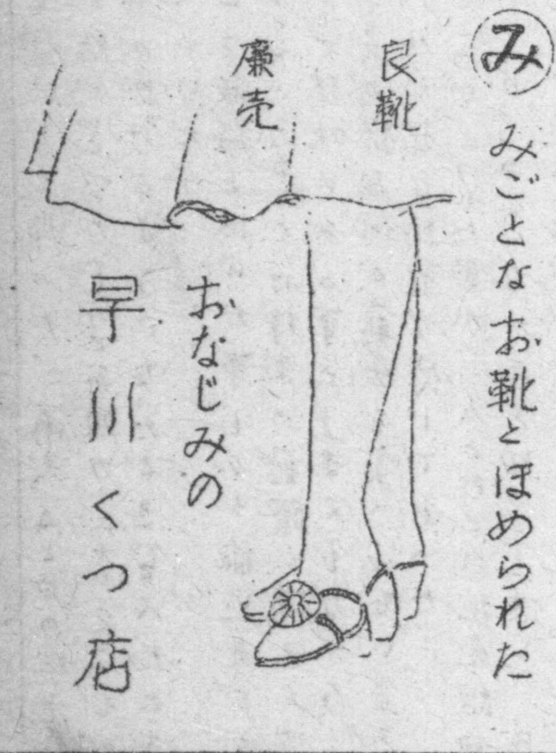 み
みごとなお靴とほめられた
良靴
廉売
おなじみの
早川くつ店